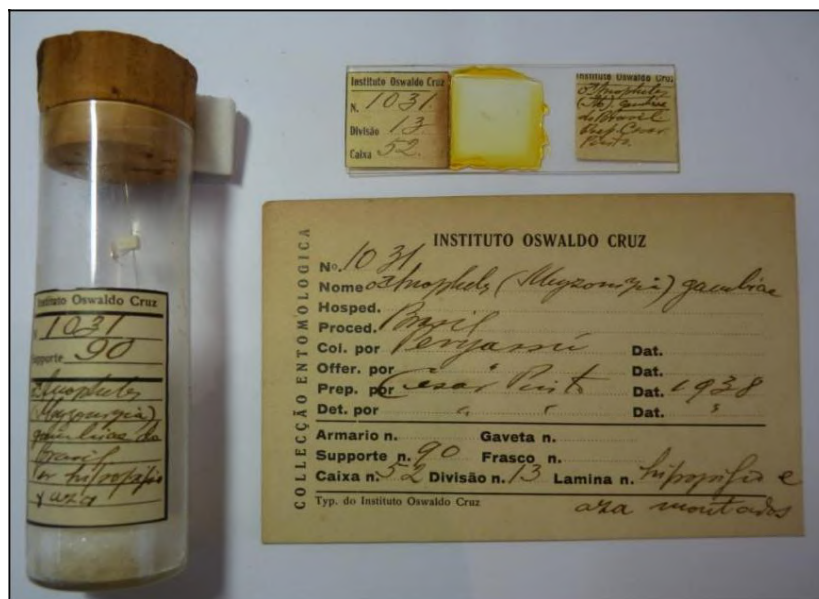 Instituto Oswaldo Cruz
1031
Supporte 90
Anopheles
(Myzomyia)
gambiae do
Brasil
hipopigio
y aza
Instituto Oswaldo Cruz
N. 1031
Divisão 13
Caixa 52.
Instituto Oswaldo Cruz
Anopheles
(M) gambiae
do Brasil
Prep. Cesar
Pinto.
COLLECÇÃO ENTOMOLOGICA
INSTITUTO OSWALDO CRUZ
No. 1031
Nome Anopheles (Myzomyia) gambiae
Hosped.
Proced. Brasil
Col. por Dat.
Offer. por Dat.
Prep. por Cesar Pinto Dat. 1938
Det. por " " Dat. "
Armario n. Gaveta n.
Supporte n. 90 Frasco n.
Caixa n. 52 Divisão n. 13 Lamina n. hipopigio e
Typ. do Instituto Oswaldo Cruz aza montados